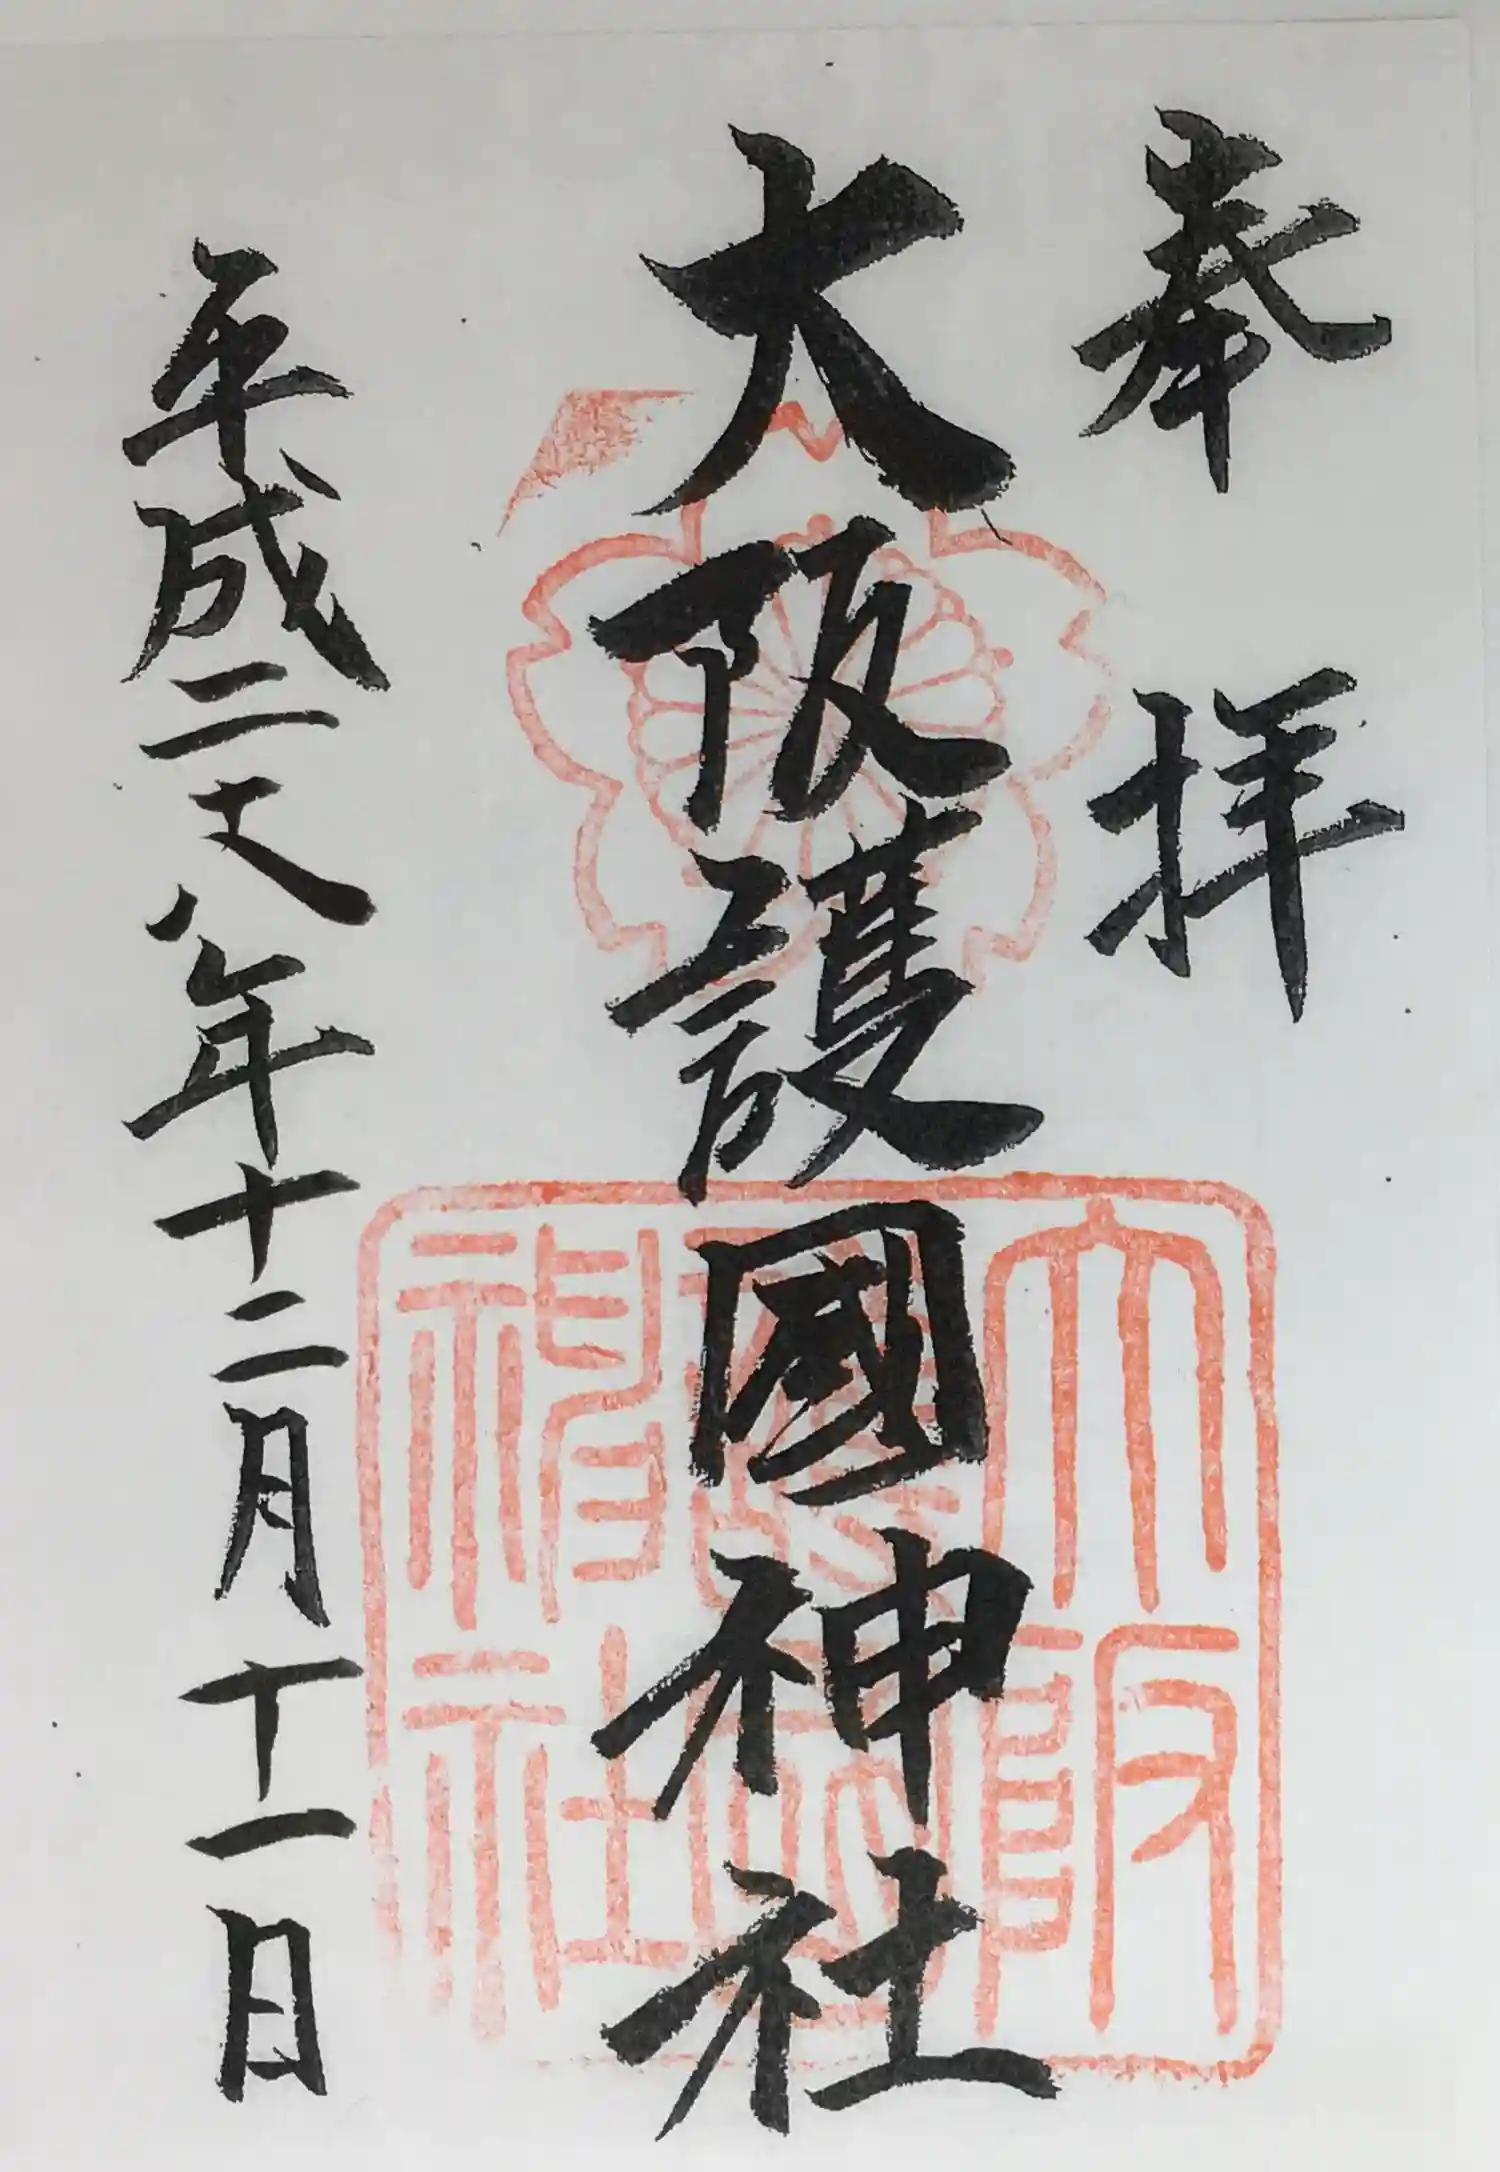 奉拝
大阪護國神社
平成二十八年十二月十一日
大阪
護國
神社